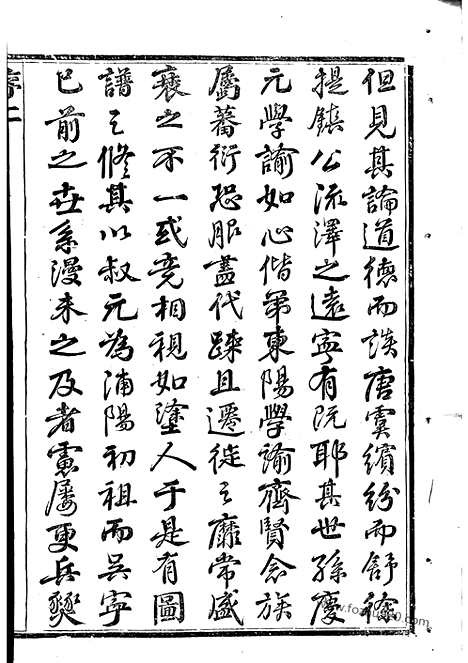 但見其論道德而談唐虞繽紛而舒徐
提鎮公流澤之遠寧有既耶其世孫慶
元學諭如心偕弟東陽學諭齊賢念族
屬蕃衍恐服盡代疎且遷徙之靡常盛
衰之不一或竟相視如塗人于是有圖
譜之修其以叔元為浦陽初祖而吳寧
已前之世系漫未之及者慮屢更兵燹
序二